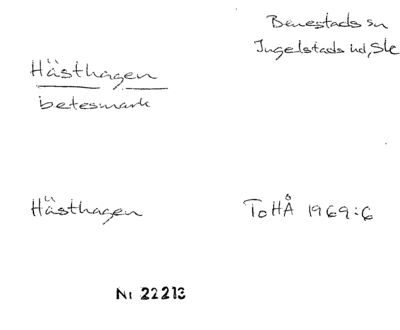 Benestads sn
Ingelstads hd, Sk
Hästhagen
betesmark
Hästhagen
ToHÅ 1969:6
Nr 22213